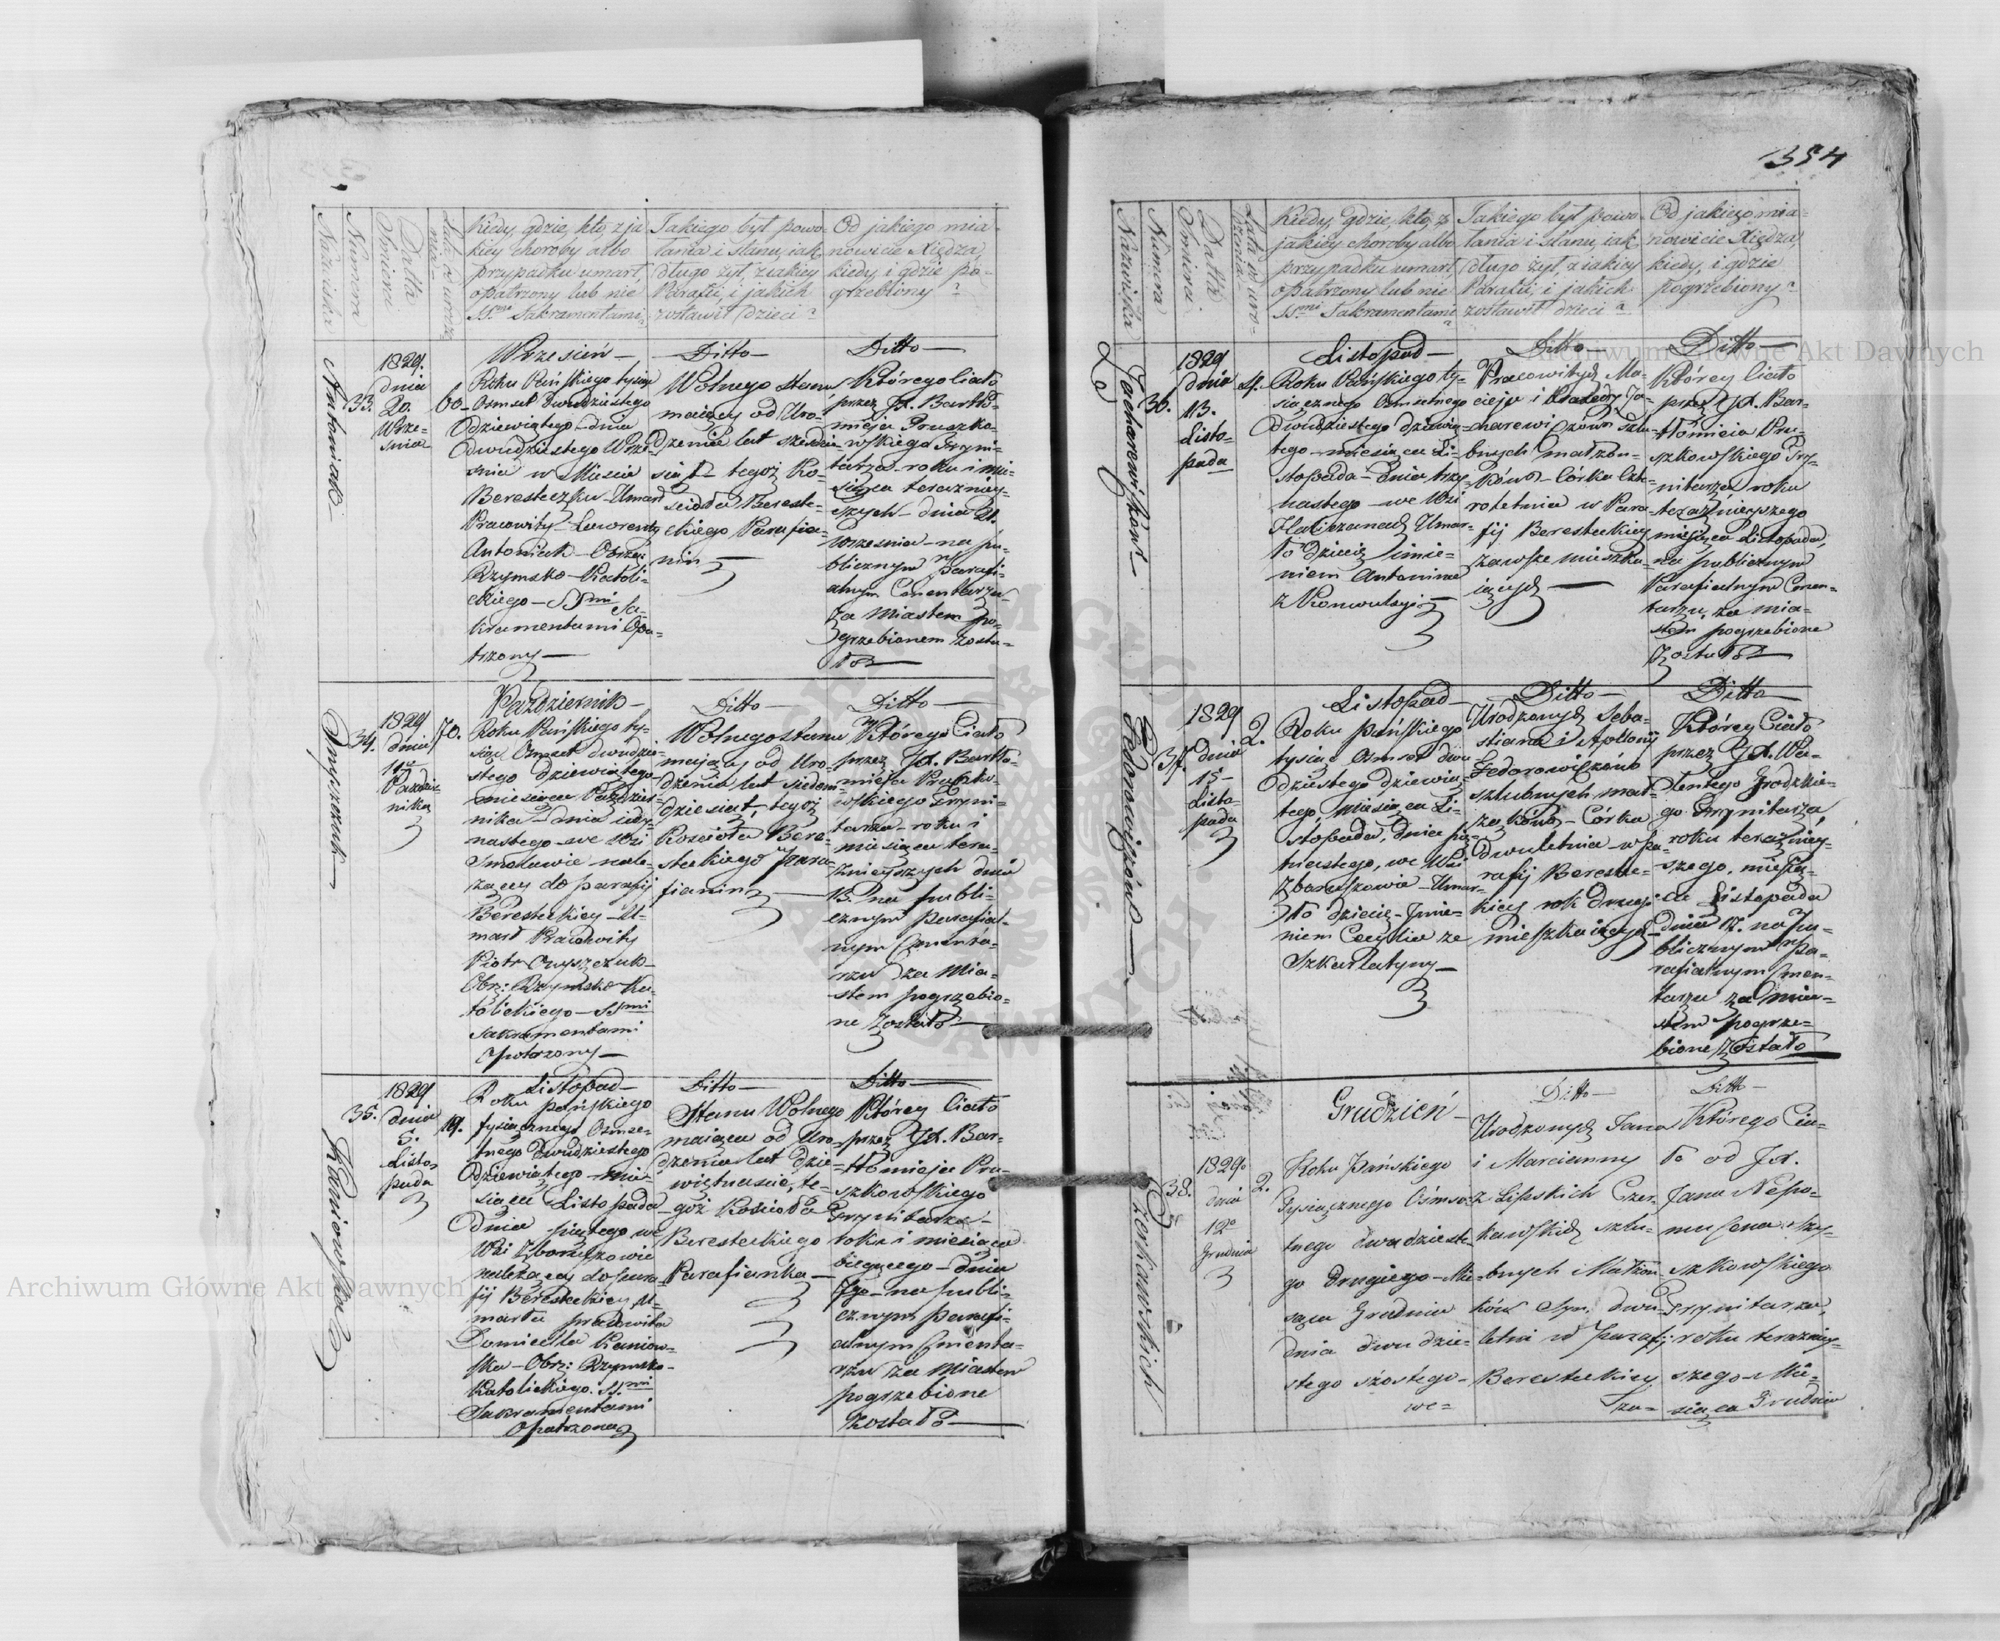 354
Nazwiska
Numera
Datta Śmierci
Lata od urodze-
nia
Kiedy, gdzie, kto, z ja-
kiey choroby albo
przypadku umarł,
opatrzony lub nie
SS.mi Sakramentami,
Jakiego był powo-
łania i stanu, jak
długo żył, z jakiey
Parafii, i jakich
zostawił dzieci?
Od jakiego mia-
nowicie Xiędza,
kiedy, i gdzie po-
grzebiony?
Antoniak
33.
1829.
dnia
20.
Wrze-
śnia
60
Wrzesień
Roku Pańskiego tysiąc
Osmset dwudziestego
Dziewiątego dnia
Dwudziestego Wrze-
śnia w Mieście
Beresteczku Umarł
Pracowity Lawrenty
Antoniak Obrzę:
Rzymsko Katoli-
ckiego SS.mi Sa-
kramentami Opa-
trzony
Ditto
Wolnego stanu
maiący od Uro-
dzenia lat sześćdzie-
siąt tegoż Ko-
ścioła Bereste-
ckiego Parafia-
nin
Ditto
Którego Ciało
przez JX. Bartło-
mieja Pruszko-
wskiego Tryni-
tarza roku i mie-
siąca teraźniey-
szych dnia 21.
Wrzesnia na pu-
blicznym parafi-
alnym Cmentarzu
Za Miastem po-
grzebionem zosta-
ło
Onyszczuk
34.
1829
dnia
11go
Paździer-
nika
70.
Październik
Roku Pańskiego ty-
siąc Osmset dwudzie-
stego dziewiątego
miesiąca Paździer-
nika dnia iedy-
nastego we Wsi
Smolawie nale-
żącey do parafij
Beresteckiey U-
marł Pracowity
Piotr Onyszczuk
Obrz: Rzymsko Ka-
tolickiego SS.mi
Sakramentami
Opatrzony
Ditto
Wolnego stanu
mający od Uro-
dzenia lat siedem-
dziesiąt, tegoż
Kościoła Bere-
steckiego Para-
fianin
Ditto
Którego Ciało
przez JX. Bartło-
mieja Pruszko-
wskiego Tryni-
tarza roku i
miesiąca tera-
źnieyszych dnia
13. na publi-
cznym parafial-
nym Cmenta-
rzu za Mia-
stem pogrzebio-
ne Zostało
Kaniowska
35.
1829
dnia
5.
Listo-
pada
19.
Listopad
Roku pańskiego
tysiącznego Ośmse-
tnego dwudziestego
Dziewiątego mie-
siąca Listopada
Dnia piątego we
Wsi Zboryszowie
należącey do para-
fij Beresteckiey U-
marła pracowita
Domicella Kaniow-
ska Obrz: Rzymsko-
Katolickiego SS.mi
Sakramentami
Opatrzona
Ditto
Stanu Wolnego
maiąca od Uro-
dzenia lat dzie-
więtnascie, te-
goż Kościoła
Beresteckiego
Parafianka
Ditto
Którey Ciało
przez JX. Bar-
tłomieja Pru-
szkowskiego
Trynitarza
roku i miesiąca
bieżącego dnia
7go na publi-
cznym parafi-
alnym Cmenta-
rzu za Miastem
pogrzebione
Zostało
Nazwiska
Numera
Datta Śmierci
Lata od uro-
dzenia
Kiedy, gdzie, kto, z
jakiey choroby albo
przypadku umarł,
opatrzony lub nie
SS.mi Sakramentami?
Jakiego był powo-
łania i stanu, jak
długo żył, z jakiey
Parafii, i jakich
zostawił dzieci?
Od jakiego mia-
nowicie Xiędza,
kiedy, i gdzie
pogrzebiony?
Zacharewiczów
36.
1829
dnia
13.
Listo-
pada
4.
Listopad
Roku Pańskiego ty-
siącznego Osmsetnego
Dwudziestego dziewią-
tego miesiąca Li-
stopada dnia trzy-
nastego we Wsi
Umar-
ło dziecię imie-
niem Antonina
z Konwulsyi
Ditto
Pracowitych Ma-
cieja i Za-
charewiczów szlu-
bnych małżon-
ków Córka Czte-
roletnia w Para-
fij Beresteckiey
zawsze mieszka-
iących
Ditto
Którey Ciało
przez JX. Bar-
tłomieia Pru-
szkowskiego Try-
nitarza roku
teraźnieyszego
miesiąca Listopada,
na publicznym
Parafialnym Cmen-
tarzu, za Mia-
stem pogrzebione
Zostało
Fedorowiczówna
37.
1829
dnia
15
Listo-
pada
2.
Listopad
Roku pańskiego
tysiąc Osmset dwu-
dziestego dziewią-
tego, Miesiąca Li-
stopada, dnia pię-
tnastego, we Wsi
Zboryszowie Umar-
ło dziecię Imie-
niem Cecylia ze
Szkarlatyny
Ditto
Urodzonych Seba-
stiana i Apollonij
Fedorowiczów
szlubnych mał-
żonków Córka
Dwuletnia w Pa-
rafij Bereste-
ckiey rok drugi
mieszkaiących
Ditto
Którey Ciało
przez JX. Wa-
lentego Grodzkie-
go Trynitarza,
roku teraźniey-
szego, miesią-
ca Listopada
dnia 17. na pu-
blicznym Pa-
rafialnym Cmen-
tarzu za Mia-
stem pogrze-
bione Zostało
Czerkawskich
38.
1829
dnia
Grudnia
2.
Grudzień
Roku Pańskiego
Tysiącznego Ośmse-
tnego dwudzieste-
go drugiego Mie-
siąca Grudnia
dnia dwudzie-
stego szóstego
we
Ditto
Urodzonych Jana
i Marcianny
z Lipskich Czer-
kawskich szlu-
bnych Małżon-
ków Syn dwu-
letni w Parafij
Beresteckiey
za-
Ditto
Którego Cia-
ło od JX.
Jana Nepo-
mucena Szy-
szkowskiego
Trynitarza,
roku teraźniey-
szego Mie-
siąca Grudnia
Archiwum Główne Akt Dawnych
Archiwum Główne Akt Dawnych